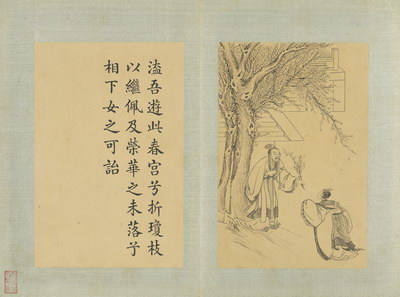 溘吾遊此春宮兮折瓊枝
以繼佩及榮華之未落兮
相下女之可詒